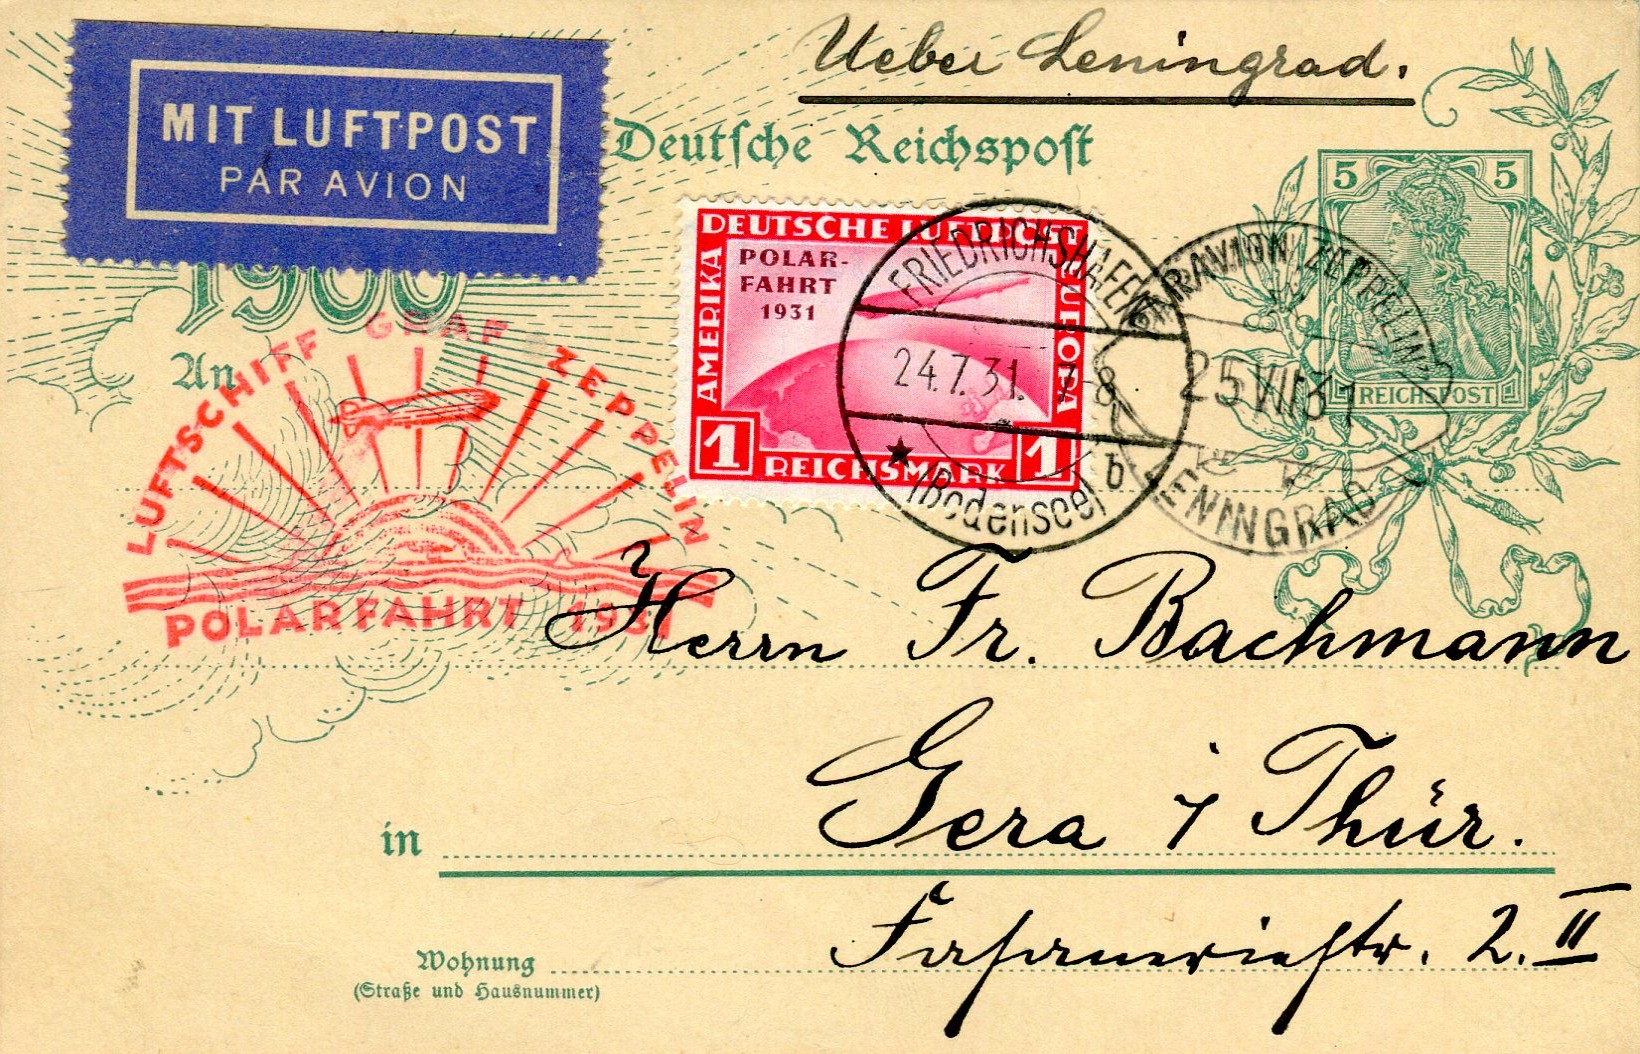 Ueber Leningrad.
MIT LUFTPOST
PAR AVION
Deutsche Reichspost
1900
5 5
REICHSPOST
DEUTSCHE LUFTPOST
AMERIKA
EUROPA
POLAR-
FAHRT
1931
1 REICHSMARK 1
FRIEDRICHSHAFEN
24.7.31. 7-8
★ (Bodensee) b
PAR AVION ZEPPELIN
25 VII 31
LENINGRAD
An
LUFTSCHIFF GRAF ZEPPELIN
POLARFAHRT 1931
Herrn Fr. Bachmann
in Gera i Thür.
Fasaneriestr. 2. II
Wohnung
(Straße und Hausnummer)